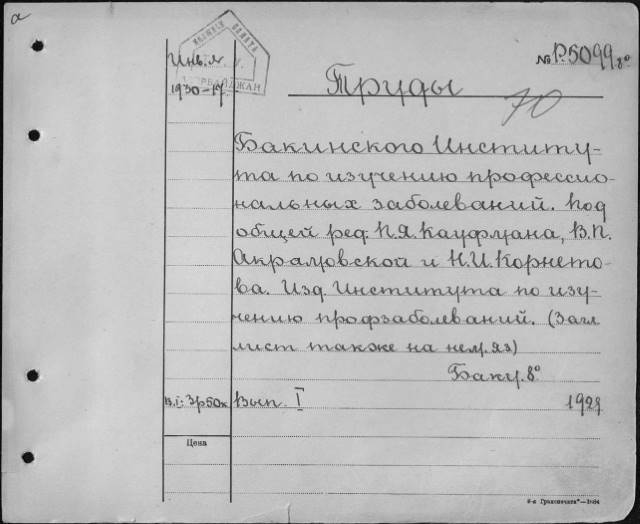 а
КНИЖНАЯ ПАЛАТА
АЗЕРБАЙДЖАН
1930-17
№ Р.5099 8°
Труды
70
Бакинского Институ-
та по изучению профессио-
нальных заболеваний. Под
общей ред. П.Я. Кауфмана, В.П.
Акрамовской и Н.И. Корнето-
ва. Изд. Института по изу-
чению профзаболеваний. (Загл
лист также на нем. яз)
Баку. 8°
В.I: 3р50к Вып. I 1929
Цена